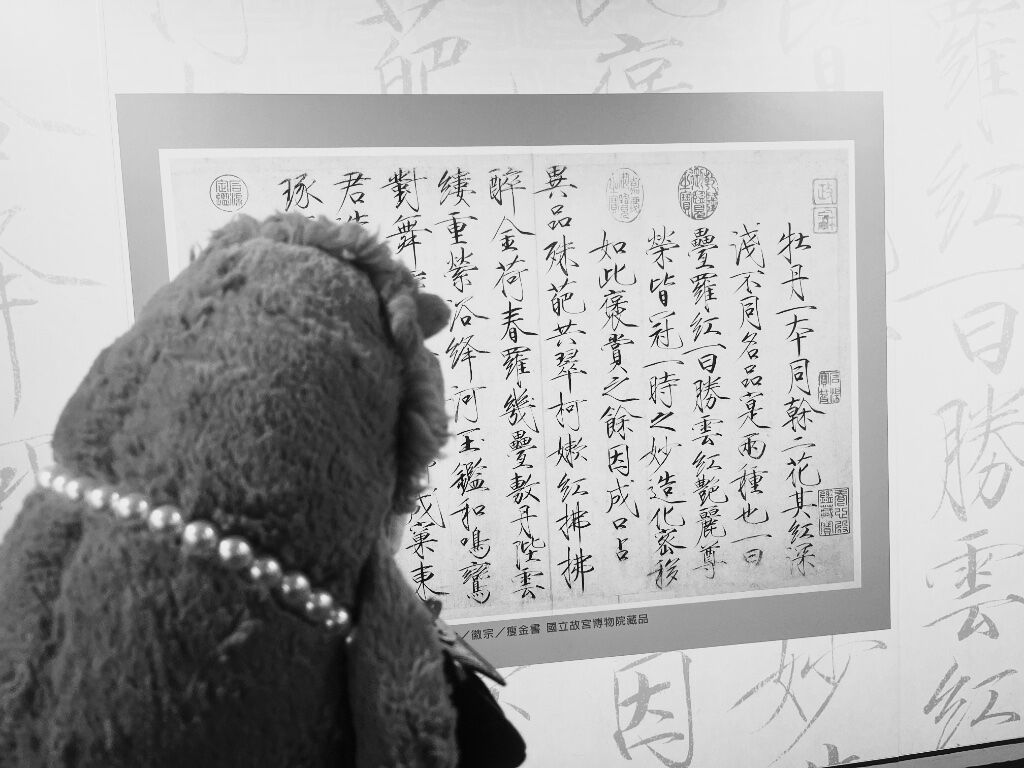 牡丹一本同幹二花其紅深
淺不同名品寔兩種也一曰
疊羅紅一曰勝雲紅艷麗尊
榮皆冠一時之妙造化密移
如此褒賞之餘因成口占
異品殊葩共翠柯嫩紅拂拂
醉金荷春羅幾疊敷丹陛雲
縷重縈浴絳河玉鑑和鳴鸞
對舞 成窠東
君造
琢
／徽宗／瘦金書 國立故宮博物院藏品
羅紅一曰勝雲紅
妙
因
葩